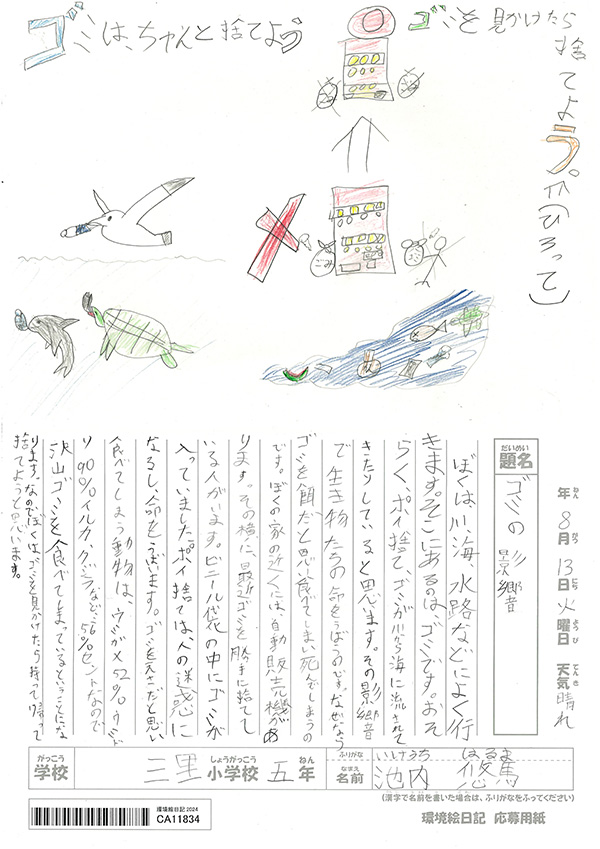 ゴミは、ちゃんと捨てよう
ゴミを見かけたら
捨てよう。
(ひろって)
ごみ
年 8月 13日 火曜日 天気 晴れ
ねん がつ にち ようび てんき
だいめい
題名
ゴミの影響
ぼくは、川、海、水路などによく行
きます。そこにあるのは、ゴミです。おそ
らく、ポイ捨て、ゴミが川から海に流されて
きたりしていると思います。その影響
で生き物たちの命をうばうのです。なぜなら
ゴミを餌だと思い食べてしまい死んでしまうの
です。ぼくの家の近くには、自動販売機があ
ります。その横に、最近ゴミを勝手に捨てて
いる人がいます。ビニール袋の中にゴミが
入っていました。ポイ捨ては人の迷惑に
なるし、命をうばいます。ゴミを大きさだと思い
食べてしまう動物は、ウミガメ52%ウミド
リ90%イルカ、クジラなど、56%セントなので
沢山ゴミを食べてしまっているということにな
ります。なのでぼくは、ゴミを見かけたら持って帰って
捨てようと思います。
がっこう しょうがっこう ねん
学校 三里 小学校 五年
ふりがな いけうち はるま
なまえ
名前 池内 悠馬
(漢字で名前を書いた場合は、ふりがなをふってください)
環境絵日記2024
CA11834
環境絵日記 応募用紙